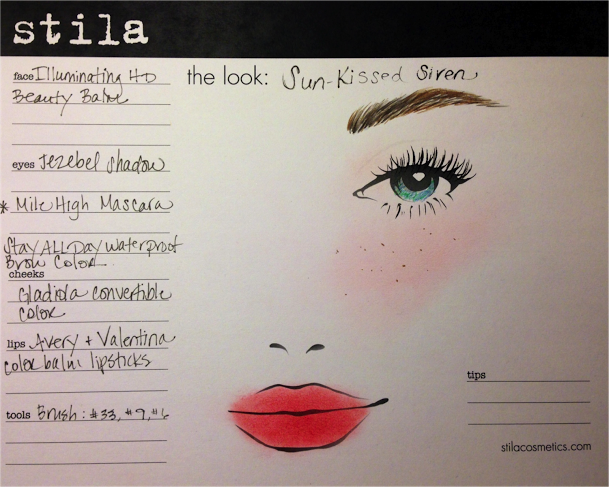 stila
the look: Sun-Kissed Siren
face Illuminating HD
Beauty Balm
eyes Jezebel Shadow
* Mile High Mascara
Stay ALL Day waterproof
Brow Color
cheeks
Gladiola convertible
color
lips Avery + Valentina
color balm lipsticks
tools Brush: #33, #9, #6
tips
stilacosmetics.com